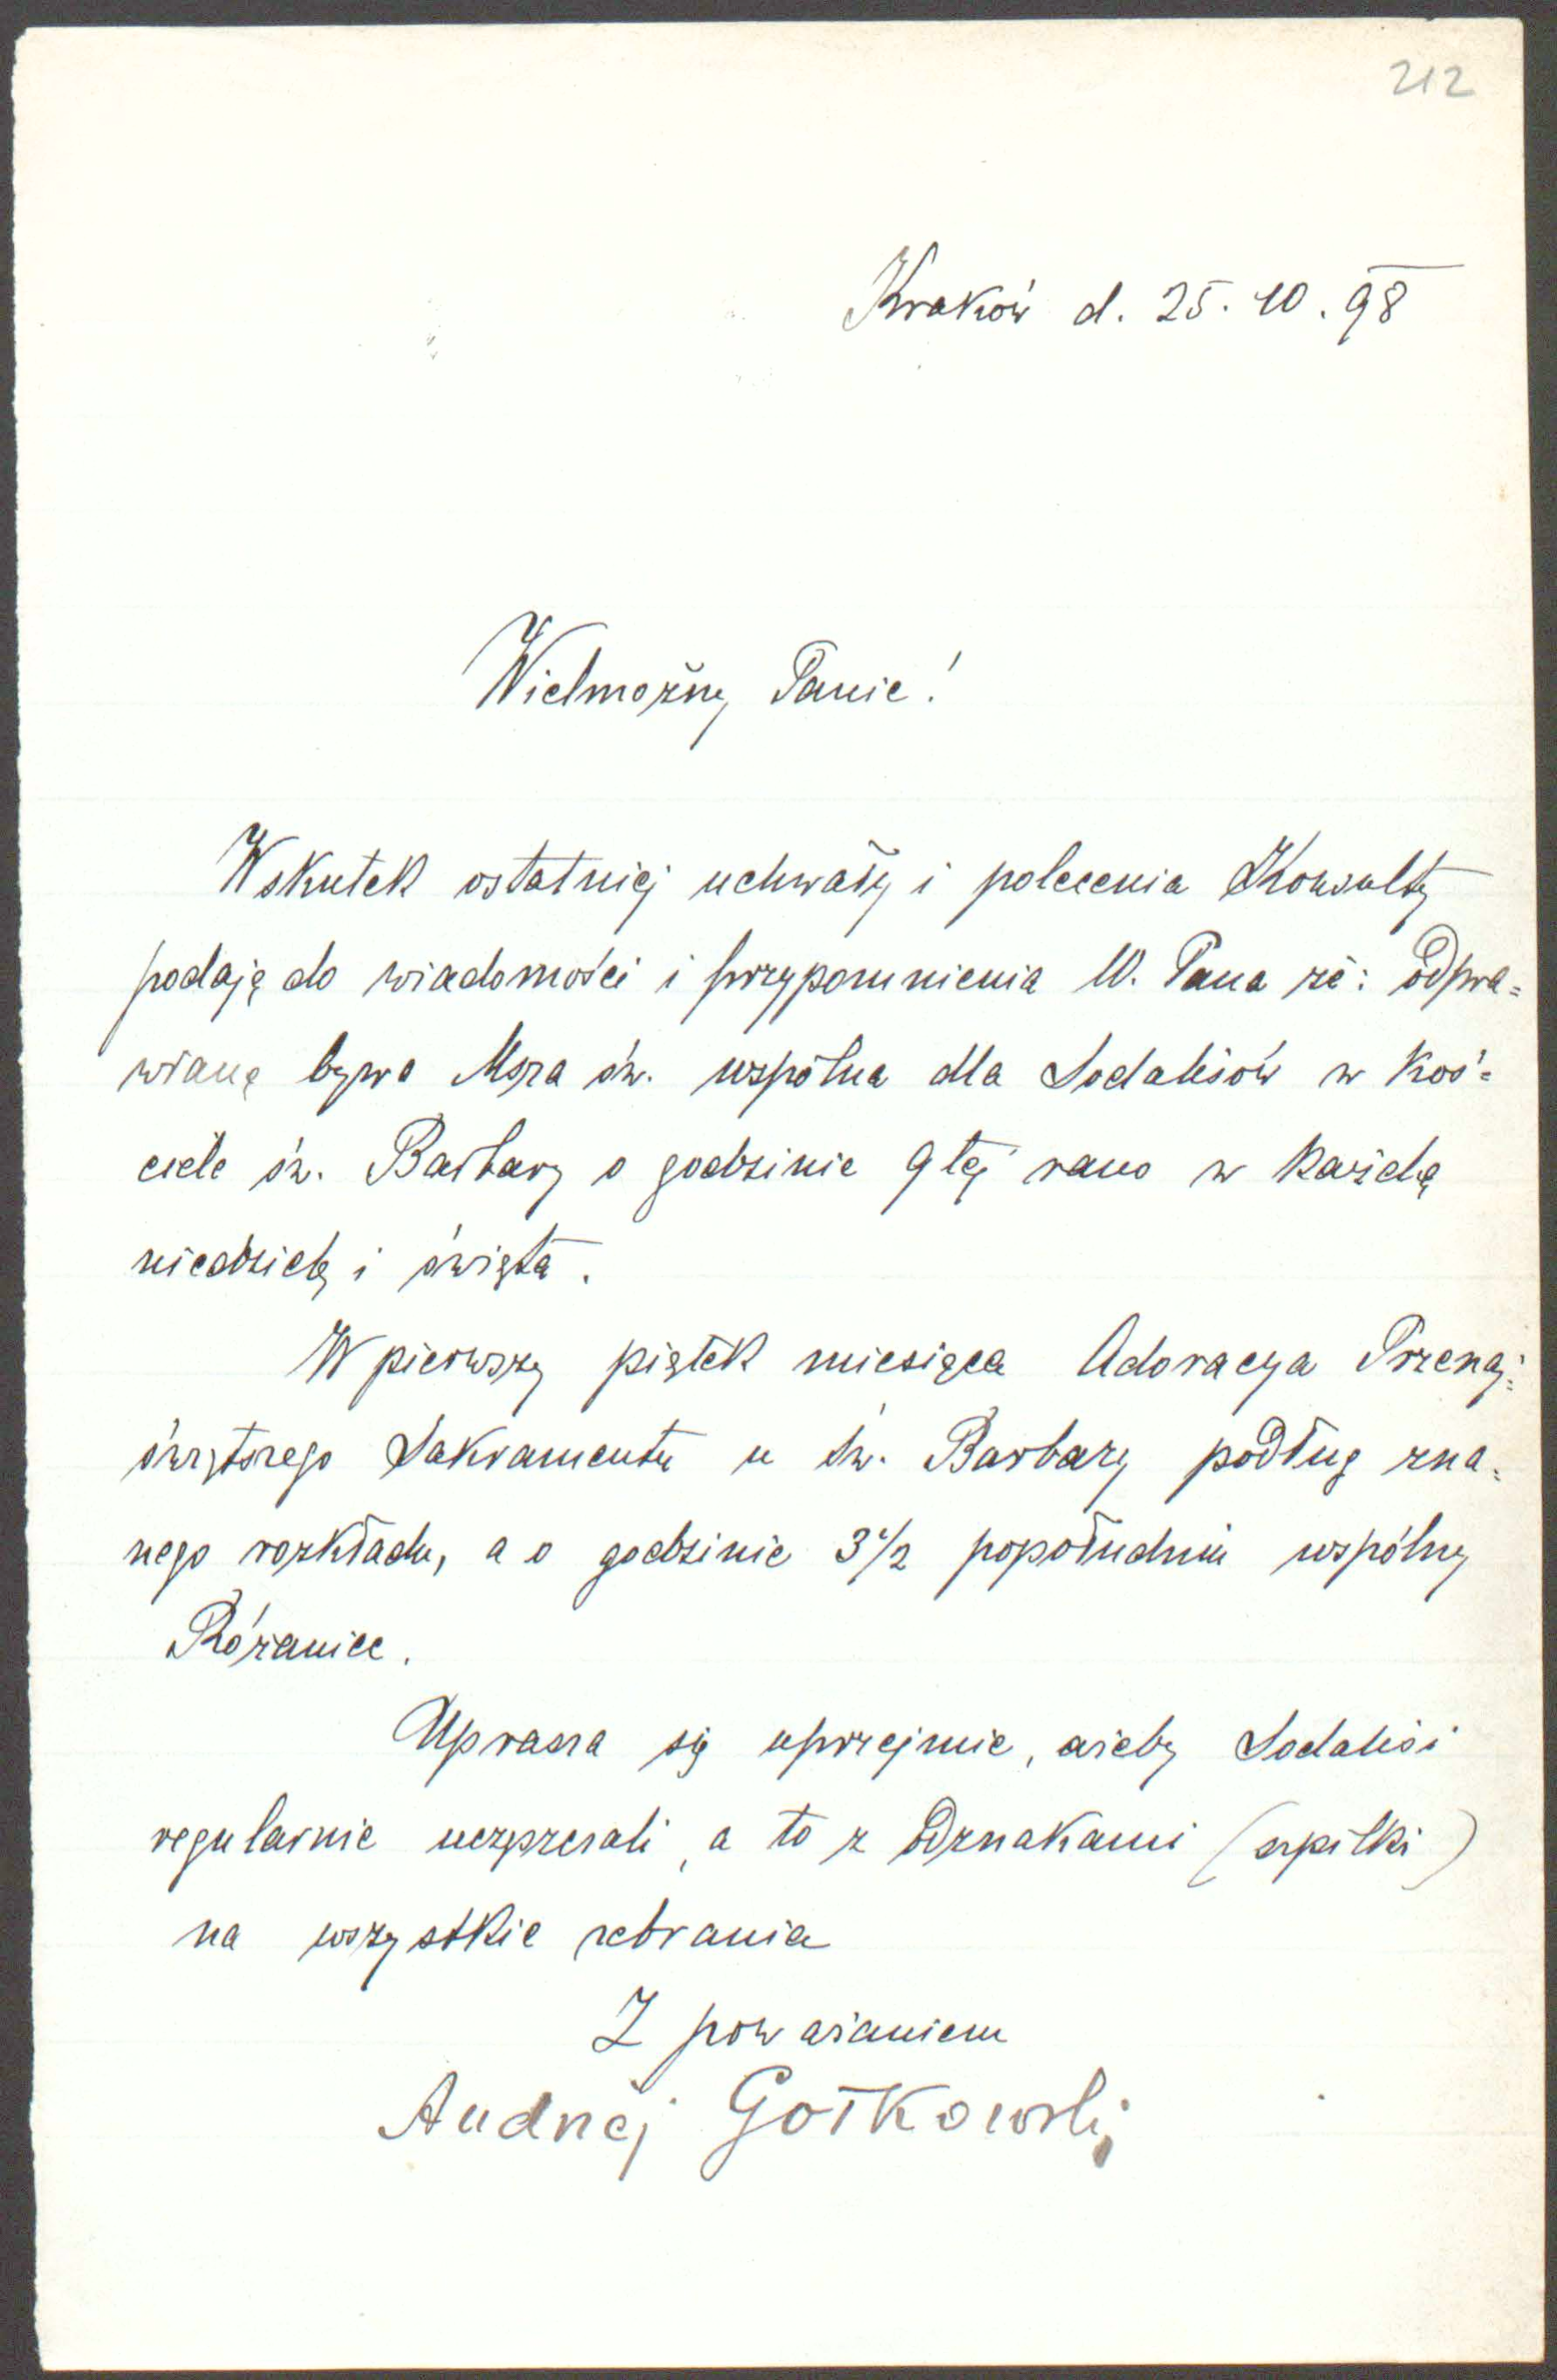 212
Kraków d. 25. 10. 98
Wielmożny Panie!
Wskutek ostatniej uchwały i polecenia Konsulty
podaję do wiadomości i przypomnienia W. Pana że: odpra=
wianą bywa Msza św. wspólna dla Sodalisów w Koś=
ciele św. Barbary o godzinie 9tej rano w każdą
niedzielę i święta.
W pierwszy piątek miesiąca Adoracya Przenaj=
świętszego Sakramentu u św. Barbary podług zna=
nego rozkładu, a o godzinie 3 1/2 popołudniu wspólny
Różaniec.
Uprasza się uprzejmie, ażeby Sodalisi
regularnie uczęszczali, a to z Odznakami (szpilki)
na wszystkie zebrania
Z poważaniem
Andrzej Gołkowski